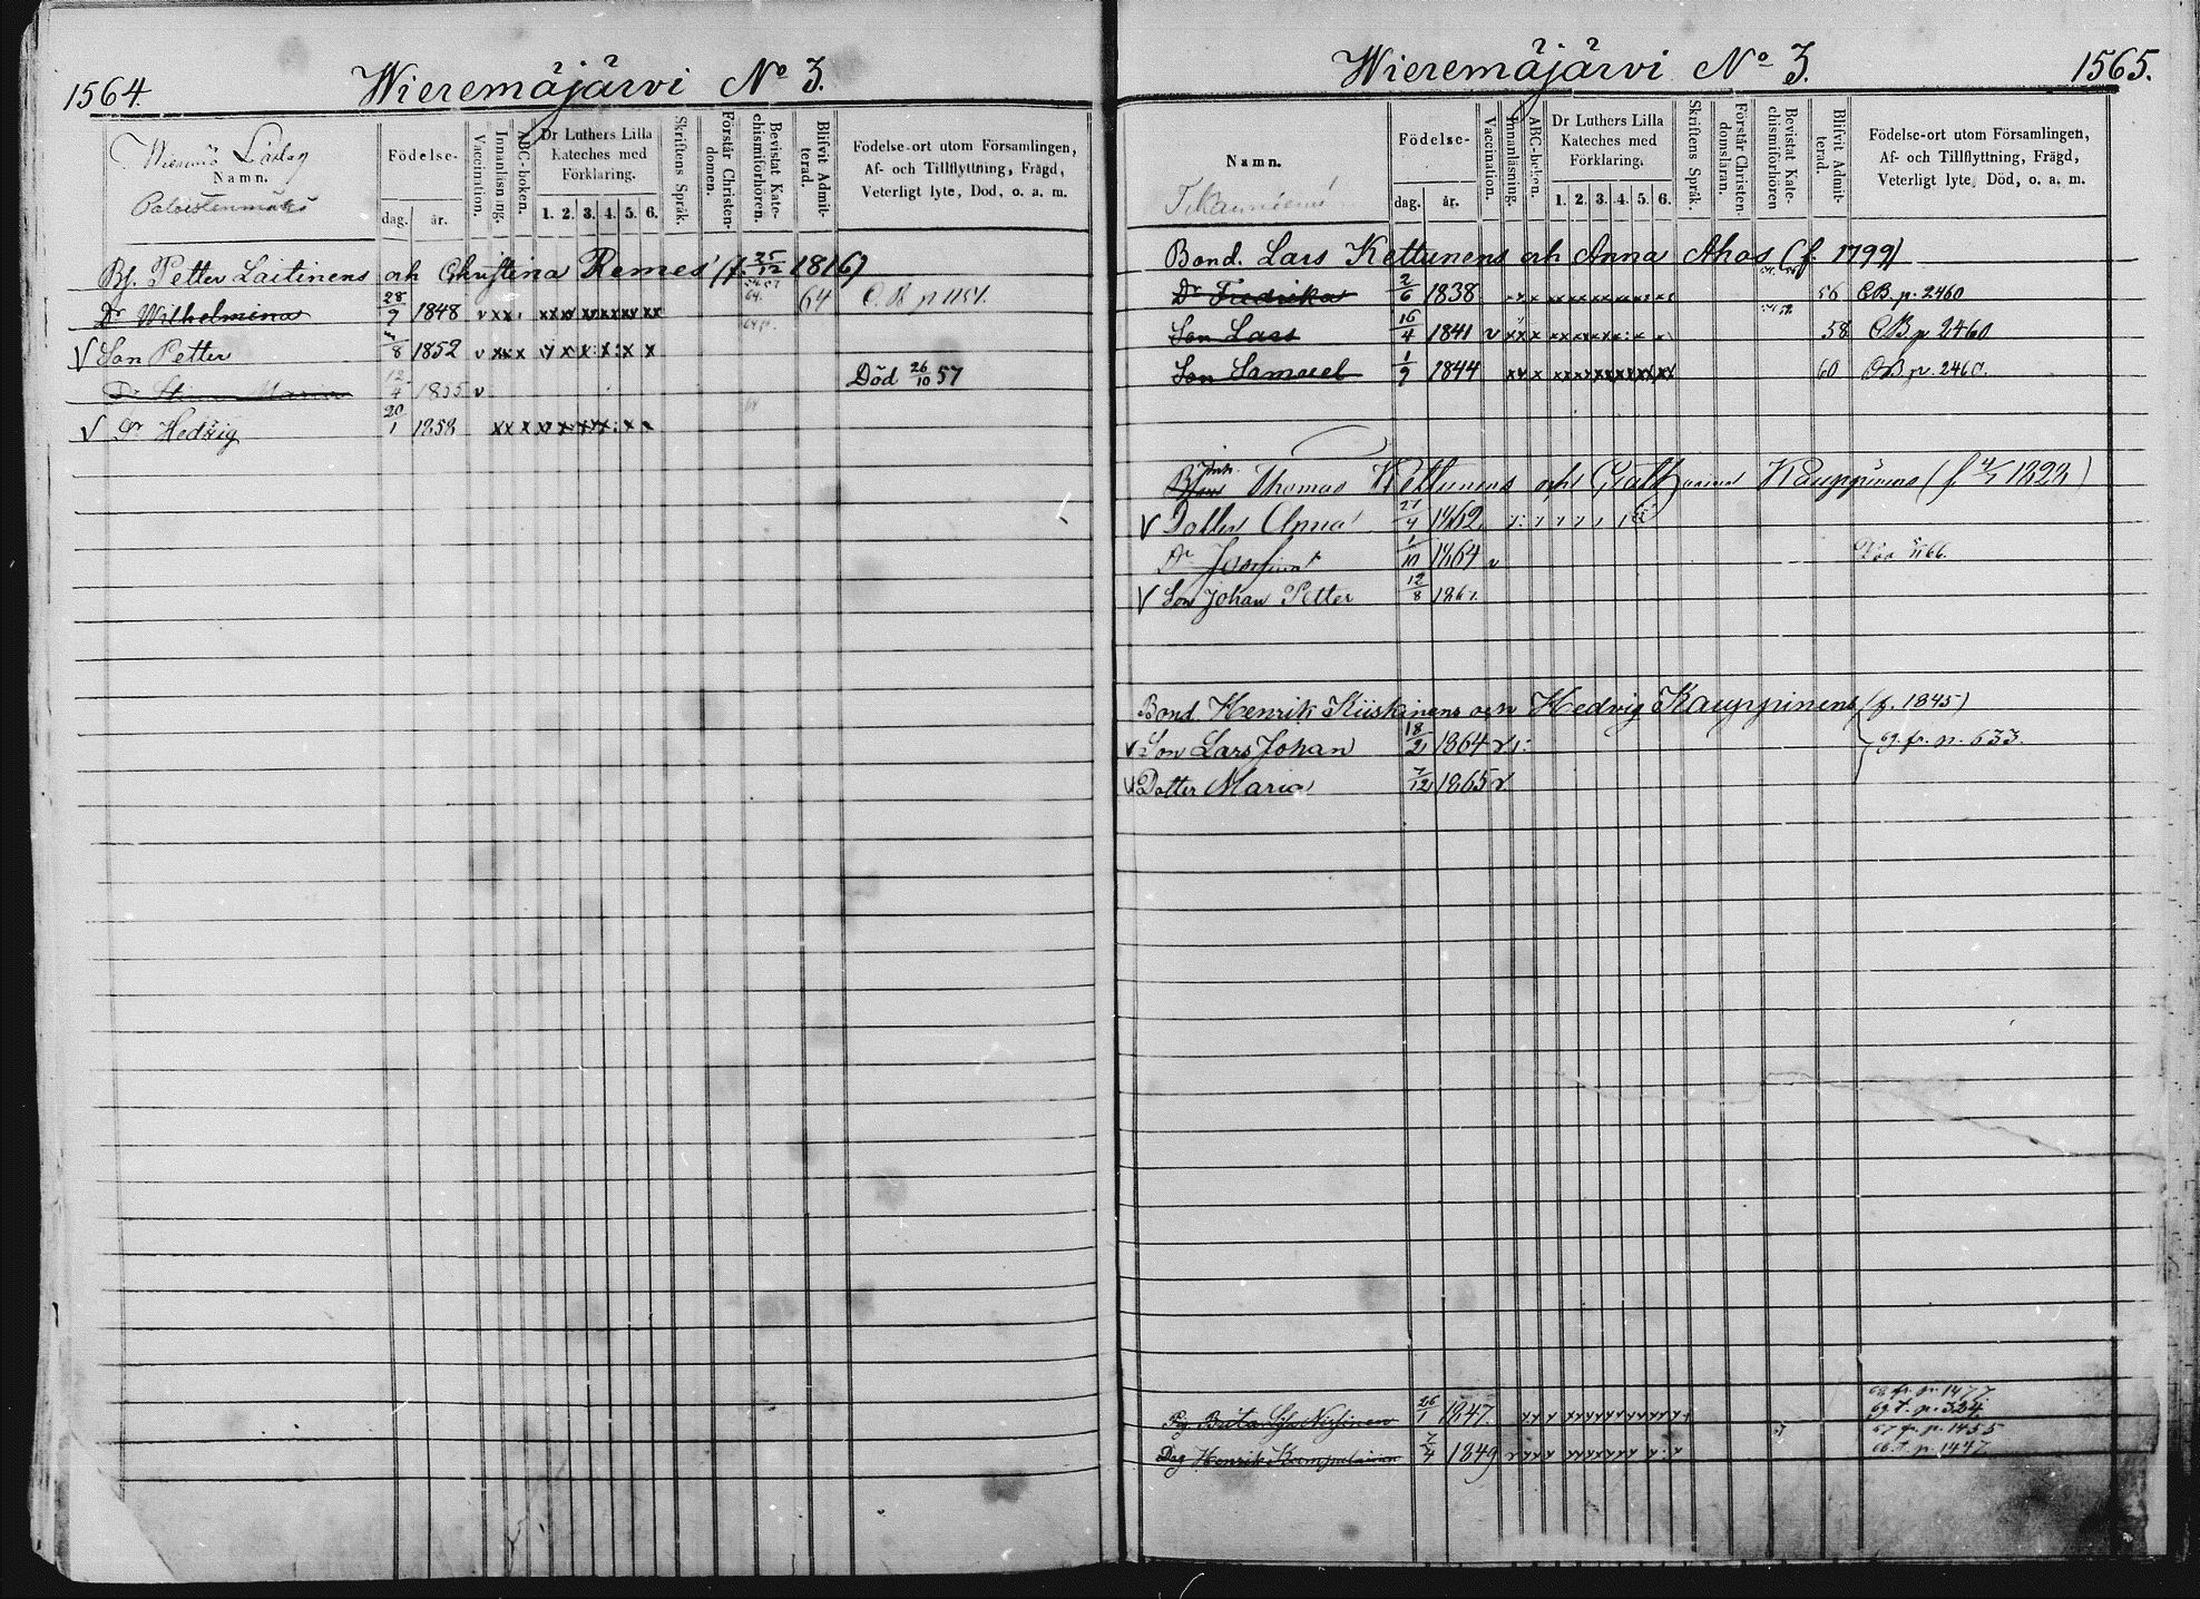 1564.
Wieremäjärvi No 3.
Namn.
Födelse-
dag. år.
Vaccination.
Innanläsning.
ABC-boken.
Dr Luthers Lilla Kateches med Förklaring.
1. 2. 3. 4. 5. 6.
Skriftens Språk.
Förstår Christendomen.
Bevistat Katechismiförhören.
Blifvit Admitterad.
Födelse-ort utom Församlingen,
Af- och Tillflyttning, Frägd,
Veterligt lyte, Dod, o. a. m.
Bf. Petter Laitinens och Christina Remes (f. 25/12 1816)
Dr Wilhelmina 28/9 1848 v xxx 64 C.B. p 1151.
V Son Petter /8 1852 v xxx
Dr Maria 12/4 1855 v Död 26/10 57
V Dr Hedvig 20/1 1858 xxx
1565.
Wieremäjärvi No 3.
Namn.
Födelse-
dag. år.
Vaccination.
Innanläsning.
ABC-boken.
Dr Luthers Lilla Kateches med Förklaring.
1. 2. 3. 4. 5. 6.
Skriftens Språk.
Förstår Christendomsläran.
Bevistat Katechismiförhören
Blifvit Admitterad.
Födelse-ort utom Församlingen,
Af- och Tillflyttning, Frägd,
Veterligt lyte, Död, o. a. m.
Bond. Lars Kettunens och Anna Ahos (f. 1799)
Dr Fredrika 2/6 1838 56 CB. p. 2460
Son Lars 16/4 1841 v xxx 58 CB p 2460
Son Samuel 1/9 1844 xxx 60 CB p. 2460.
Thomas Kettunens och Catharina Kauppinens (f 1828)
V Dotter Anna 27/4 1862
Dr Josefina 1/10 1864 v 66.
V Son Johan Petter 12/8 1867.
Bond. Henrik Kiiskinens och Hedvig Kauppinens (f. 1845)
V Son Lars Johan 18/2 1864 v 69. fr. p. 633.
V Dotter Maria 7/12 1865 v
Pig. Brita 26/1 1847. 68 fr. p. 1477
69. t. p. 324
Drg Henrik Kumpulainen 7/4 1849 67 fr. p. 1455
68. t. p. 1447